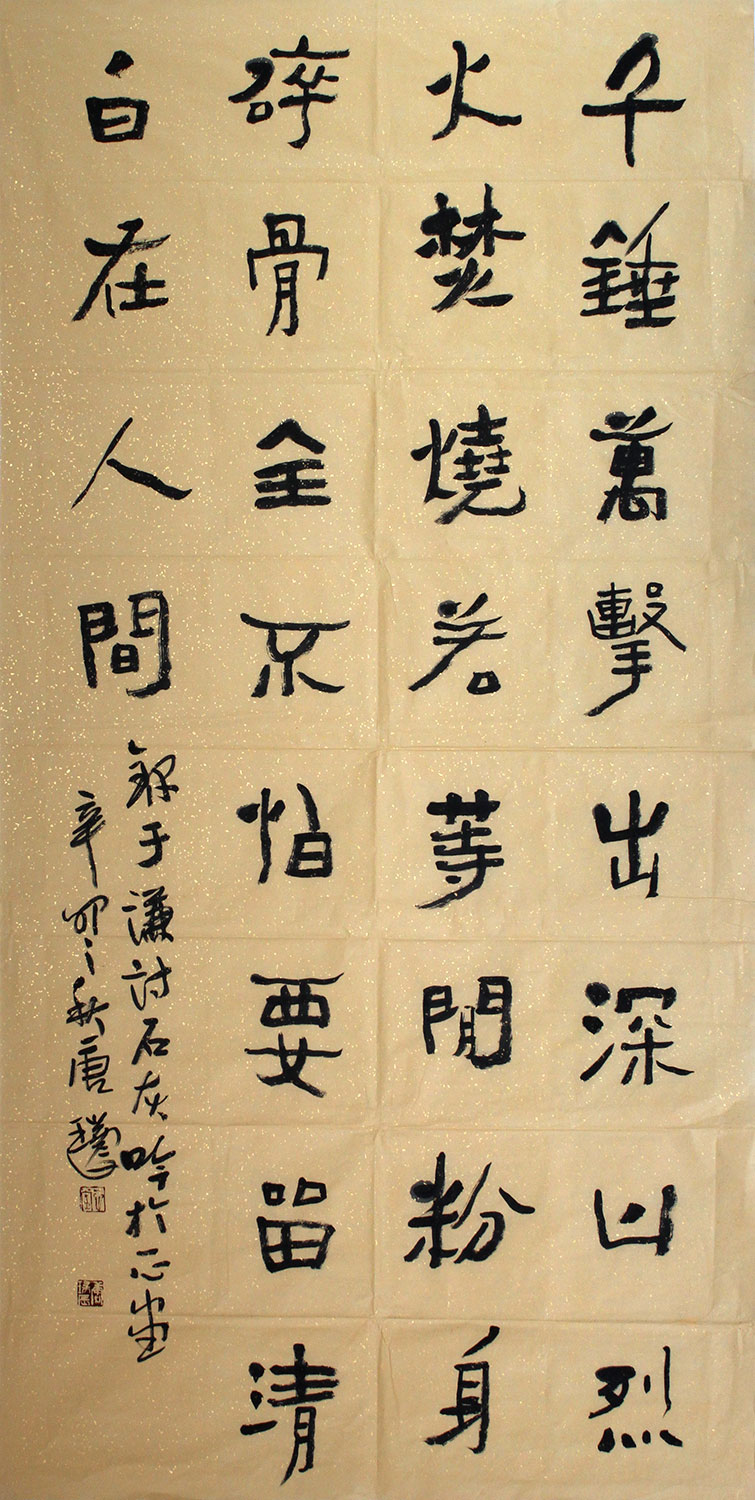 千錘萬擊出深山烈
火焚燒若等閒粉身
碎骨全不怕要留清
白在人間
錄于謙詩石灰吟於一心堂
辛卯之秋唐